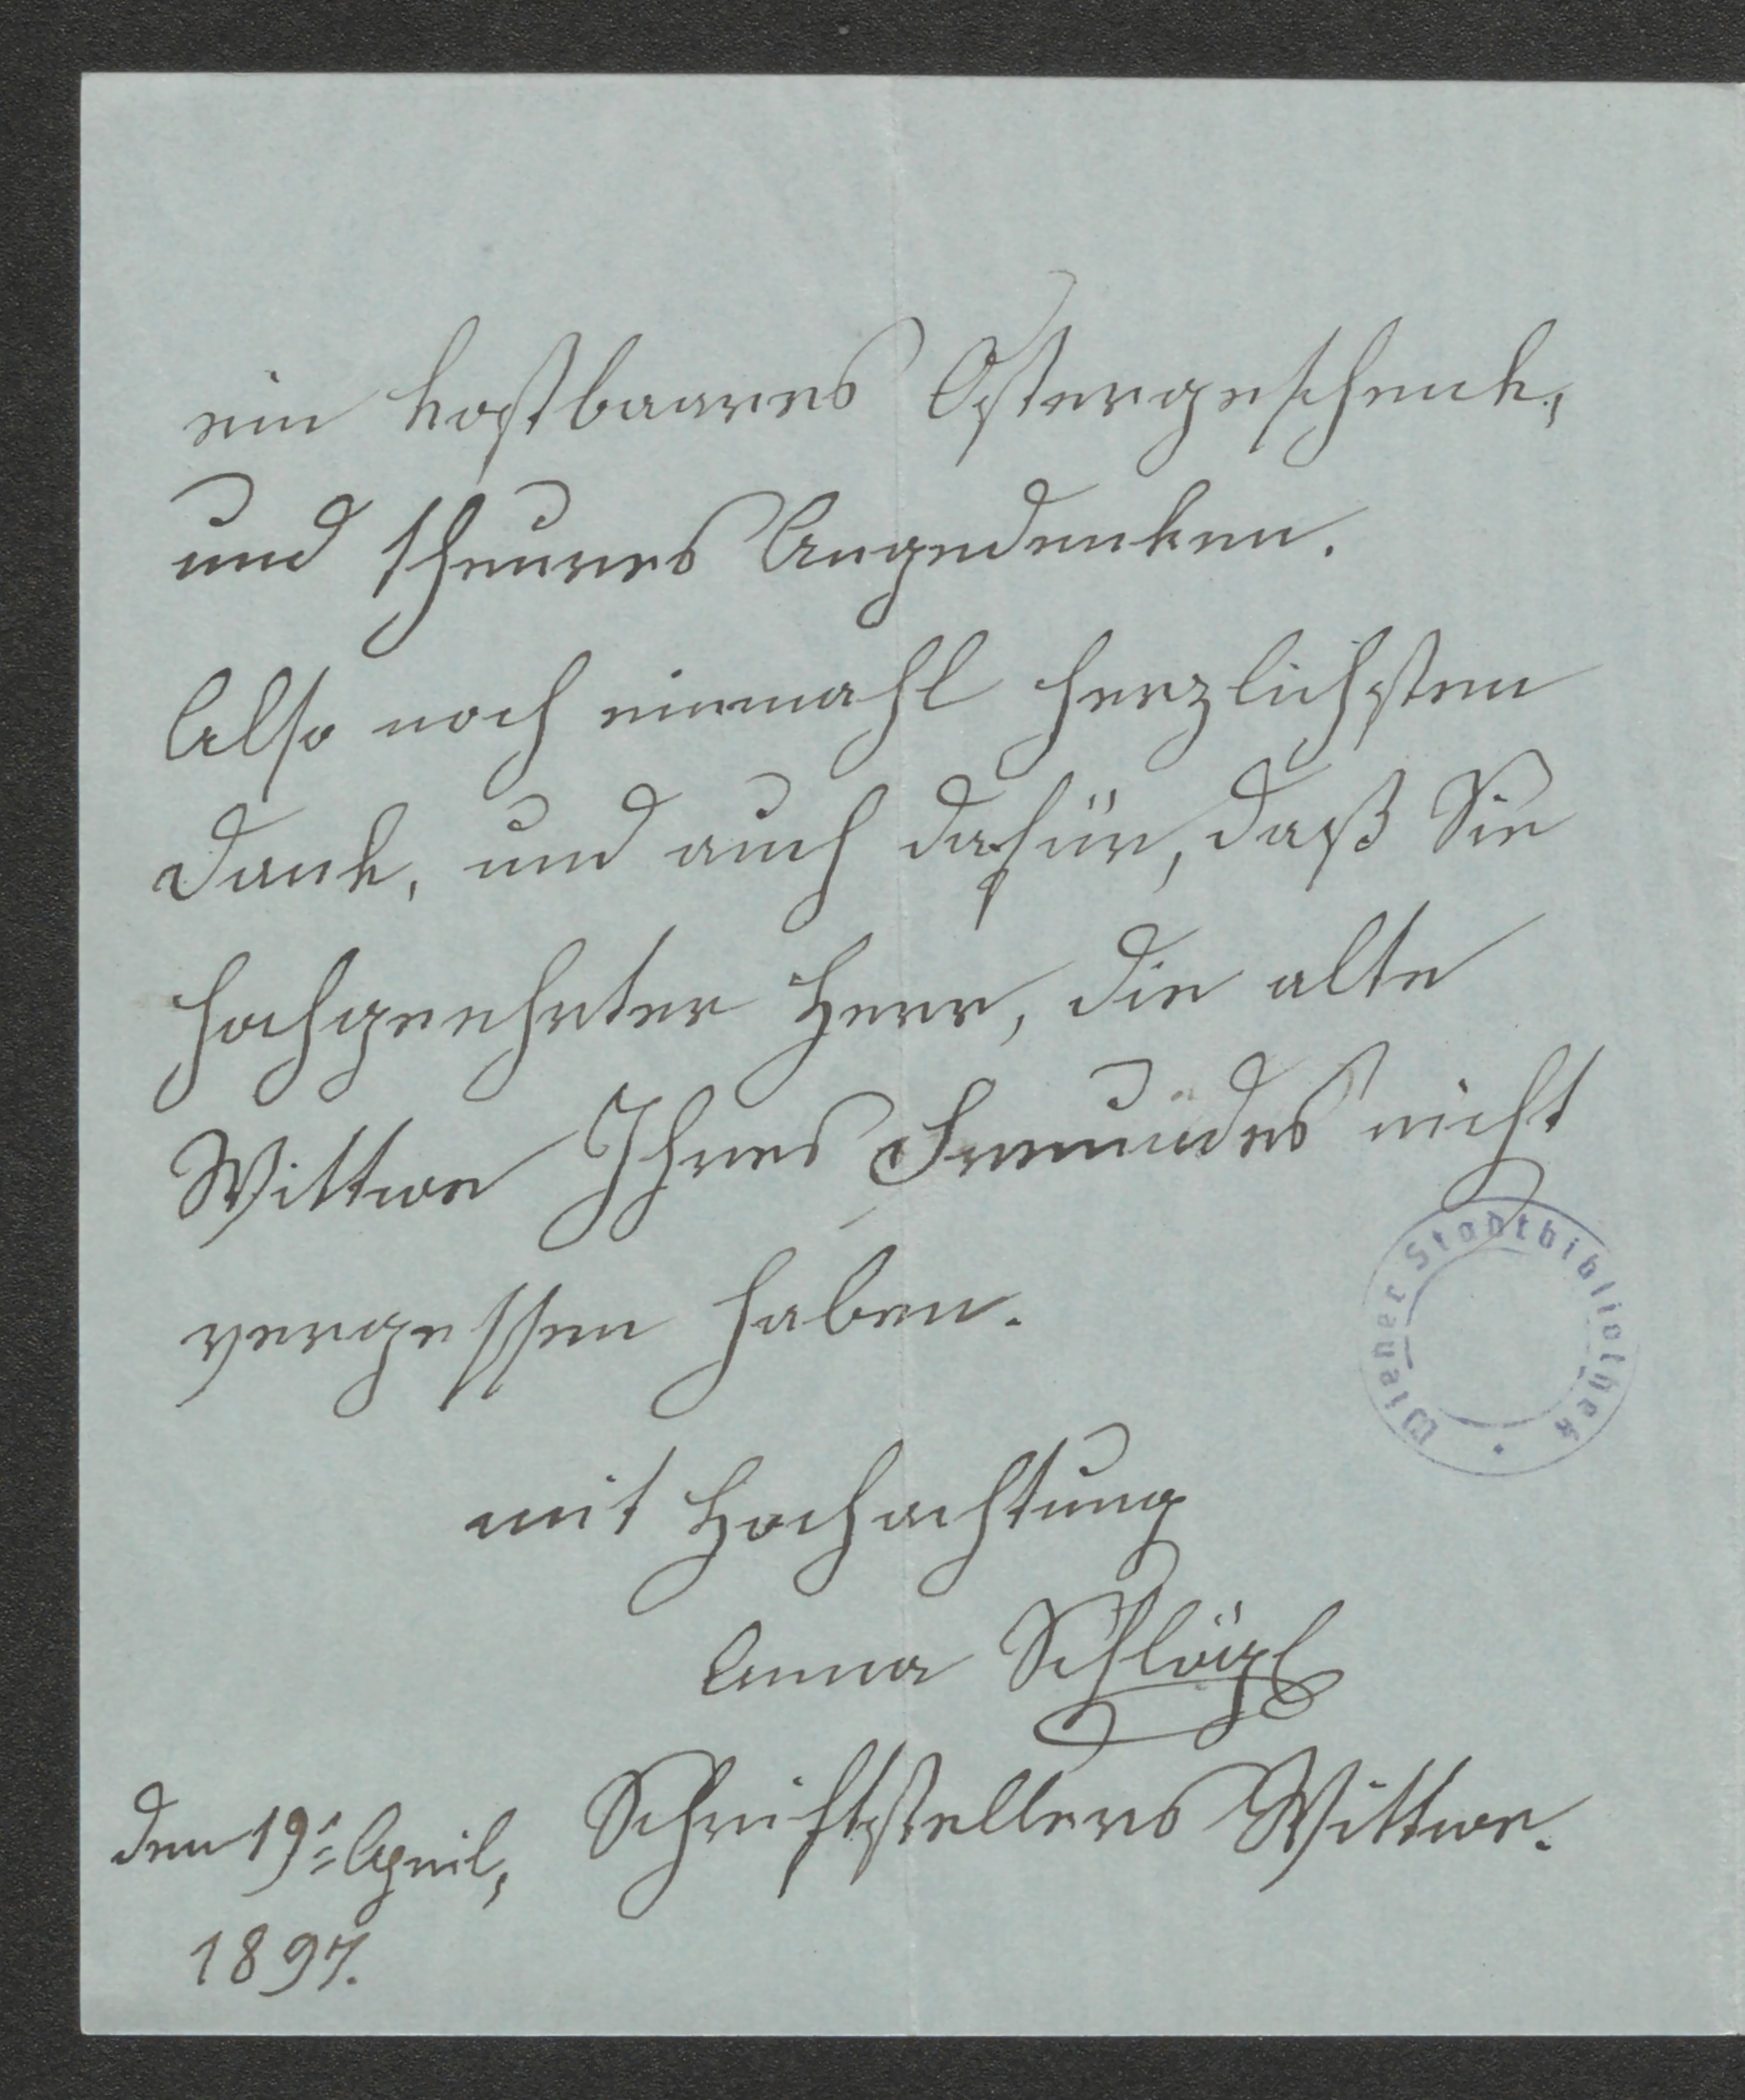 ein kostbaares Ostergeschenk,
und theures Angedenken.
Also noch einmahl herzlichsten
Dank, und auch dafür, daß Sie
hochgeehrter Herr, die alte
Wittwe Ihres Freundes nicht
vergessen haben.
Wiener Stadtbibliothek
mit Hochachtung
Anna Schlögl
Schriftstellers Wittwe.
den 19t April,
1897.